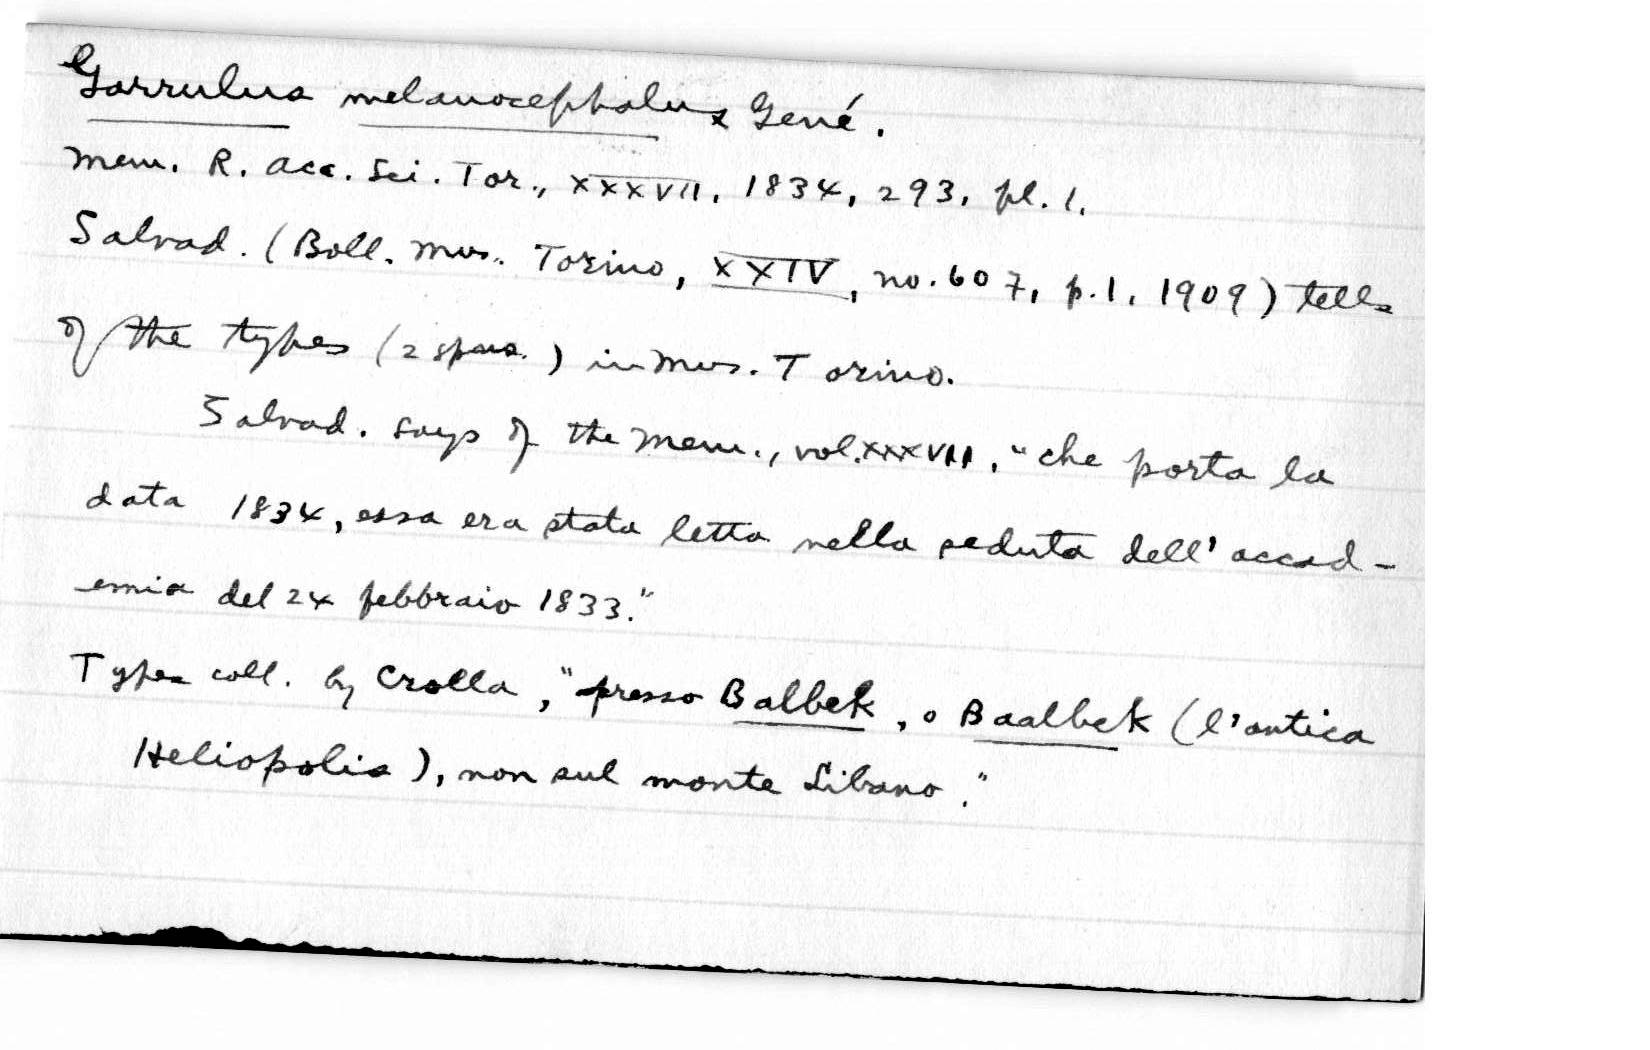 Garrulus melanocephalus Gené.
Mem. R. Acc. Sci. Tor., XXXVII, 1834, 293, pl. 1.
Salvad. (Boll. Mus. Torino, XXIV, no. 607, p. 1, 1909) tells
of the types (2 specs.) in Mus. Torino.
Salvad. says of the Mem., vol. XXXVII, "che porta la
data 1834, essa era stata letta nella seduta dell' accad-
emia del 24 febbraio 1833."
Types coll. by Crolla, "presso Balbek, o Baalbek (l'antica
Heliopolis), non sul monte Libano."